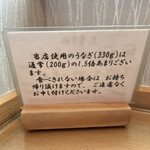 当店使用のうなぎ(330g)は
通常(200g)の1.5倍あまりございま
す。
食べきれない場合は お持ち
帰り頂けますので、ご遠慮なく
お申し付けくださいませ。